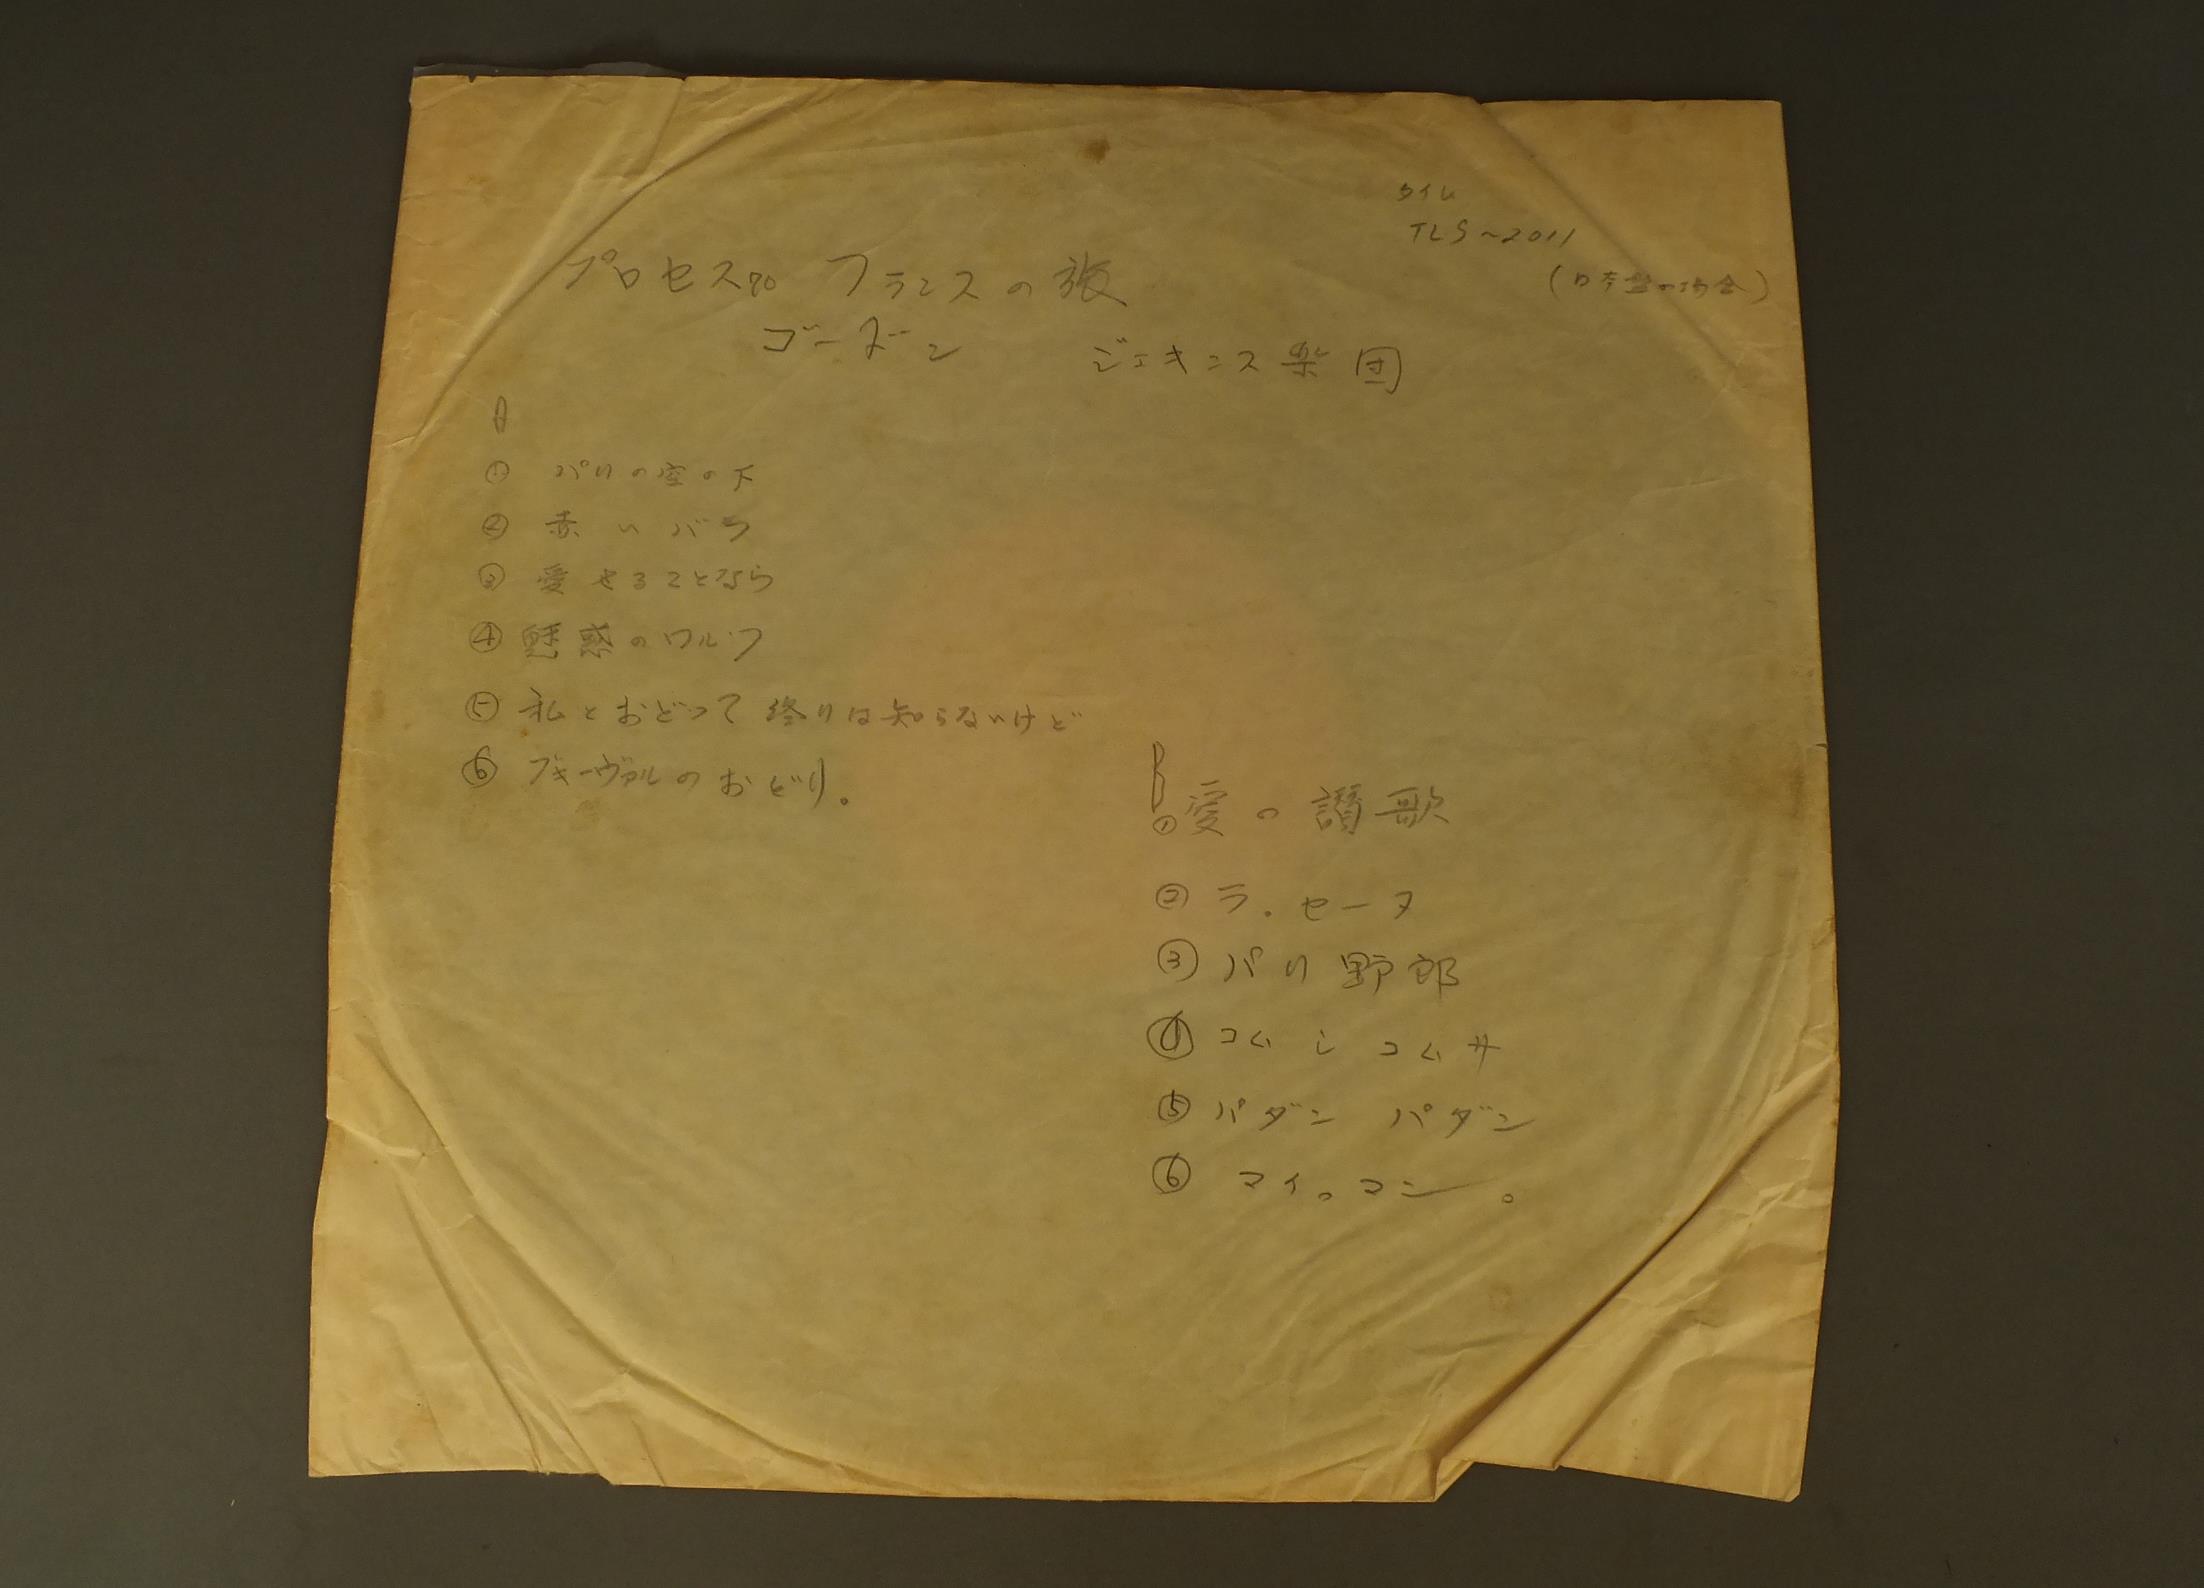 タイム
TLS~2011
(日本盤の場合)
プロセス70 フランスの旅
ゴードン ジェキンス楽団
A
① パリの空の下
② 赤いバラ
③ 愛せることなら
④ 魅惑のワルツ
⑤ 私とおどって 終りは知らないけど
⑥ のおどり。
B
① 愛の讃歌
② ラ.セーヌ
③ パリ野郎
④ コム シ コムサ
⑤ パダン パダン
⑥ マイ。マン。